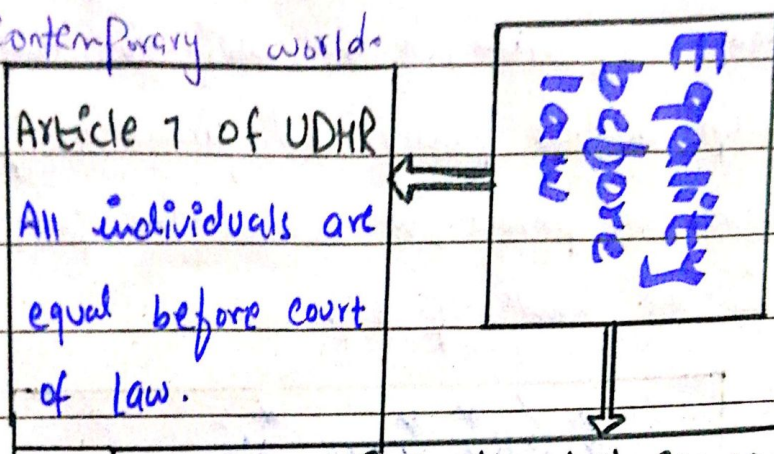 Contemporary world.
Article 7 of UDHR
All individuals are
equal before court
of law.
Equality
before
law